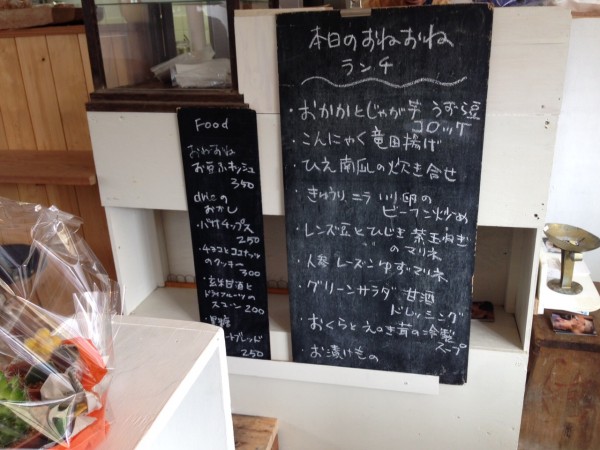 Food
おねおね
お豆ふキッシュ
350
dricの
おかし
・バナナチップス
250
・チョコとココナッツ
のクッキー
300
・玄米甘酒と
ドライフルーツの
スコーン 200
・黒糖
ートブレッド
250
本日のおねおね
ランチ
・おかかとじゃが芋 うずら豆
コロッケ
・こんにゃく竜田揚げ
・ひえ南瓜の炊き合せ
・きゅうり ニラ 川卵の
ビーフン炒め
・レンズ豆とひじき 茶玉ねぎ
のマリネ
・人参 レーズン ゆずマリネ
・グリーンサラダ 甘酒
ドレッシング
・おくらとえのき茸の冷製
スープ
・お漬けもの